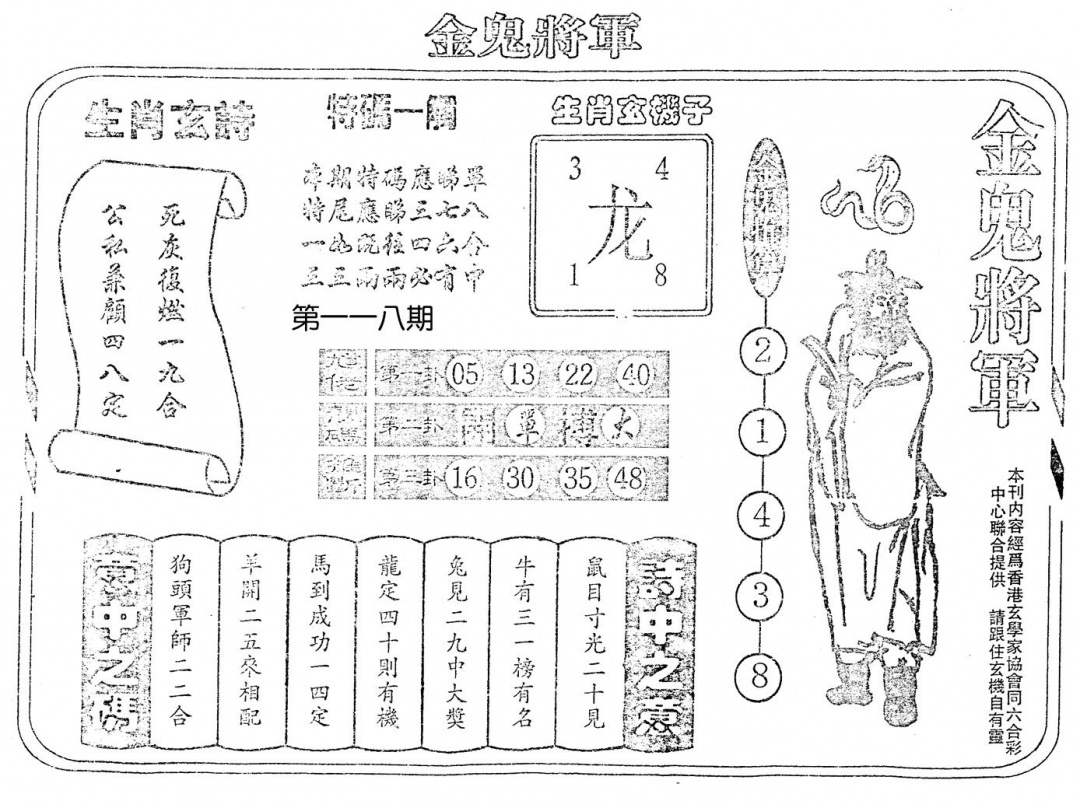 金鬼將軍
生肖玄詩
死灰復燃一九合
公私兼顧四八定
特碼一欄
本期特碼應睇單
特尾應睇三七八
一如既往四六合
三三兩兩必有中
第一一八期
生肖玄機子
3 4
龙
1 8
第一卦 05 13 22 40
第二卦 單 大
第三卦 16 30 35 48
金鬼將軍
2
1
4
3
8
金鬼將軍
本刊内容經爲香港玄學家協會同六合彩
中心聯合提供 請跟住玄機自有靈
詩中之意
鼠目寸光二十見
牛有三一榜有名
兔見二九中大獎
龍定四十則有機
馬到成功一四定
羊開二五來相配
狗頭軍師二二合
意中之碼